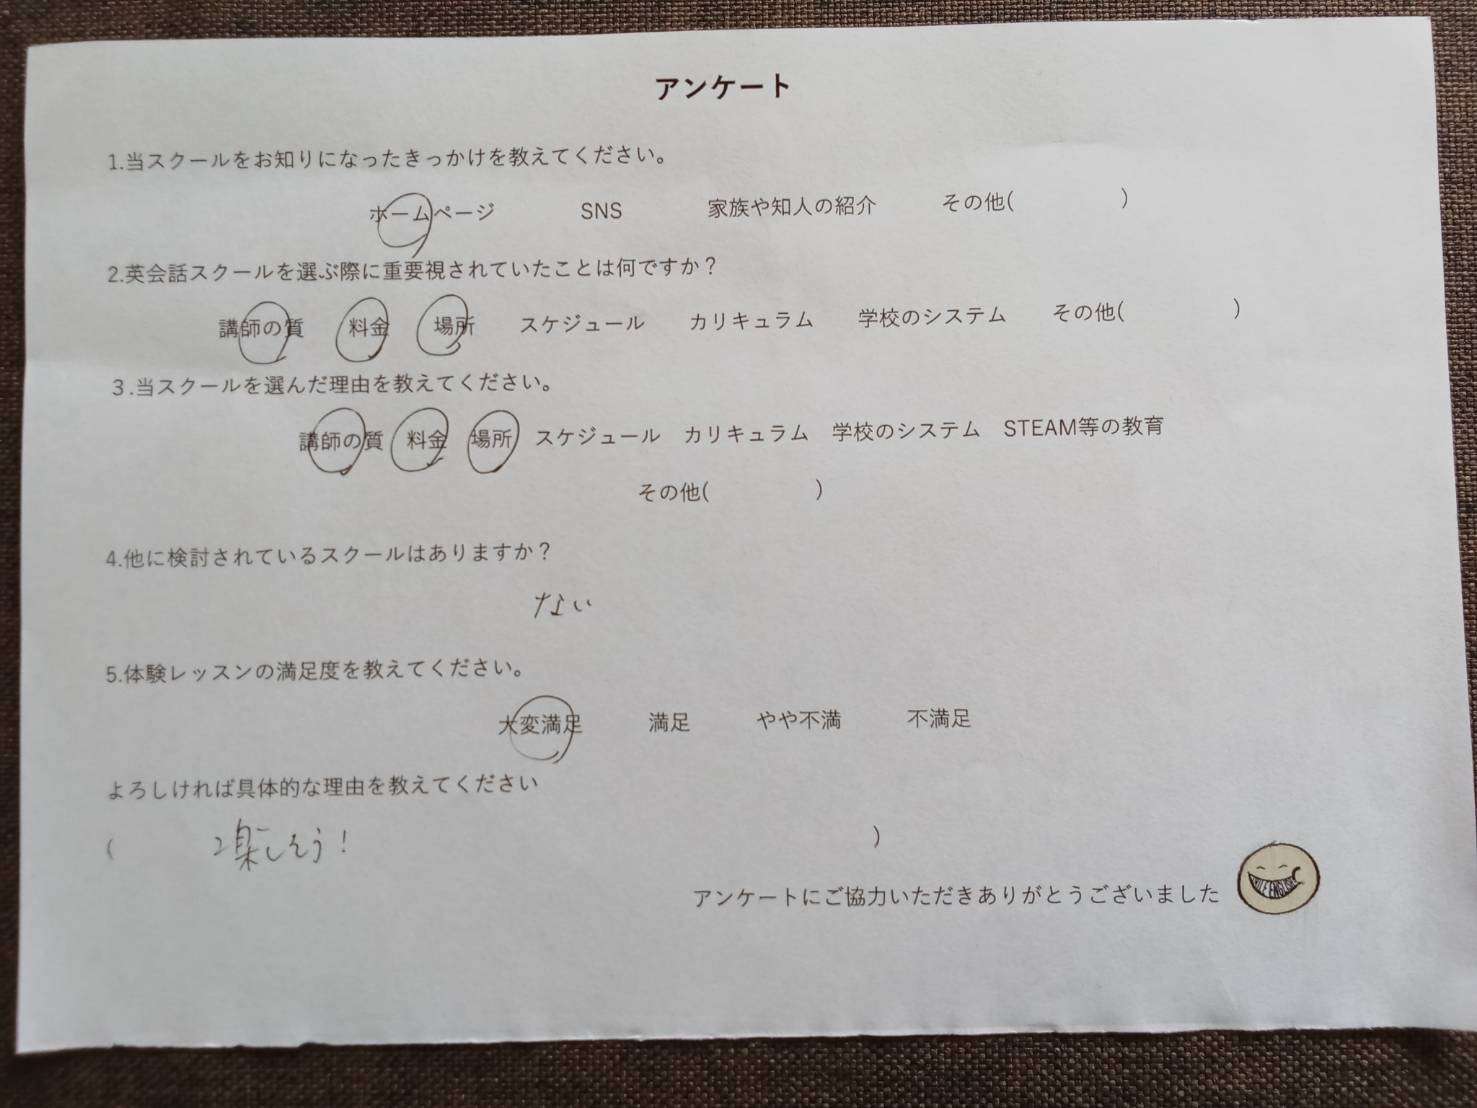 アンケート
1.当スクールをお知りになったきっかけを教えてください。
ホームページ SNS 家族や知人の紹介 その他( )
2.英会話スクールを選ぶ際に重要視されていたことは何ですか？
講師の質 料金 場所 スケジュール カリキュラム 学校のシステム その他( )
３.当スクールを選んだ理由を教えてください。
講師の質 料金 場所 スケジュール カリキュラム 学校のシステム STEAM等の教育
その他( )
4.他に検討されているスクールはありますか？
ない
5.体験レッスンの満足度を教えてください。
大変満足 満足 やや不満 不満足
よろしければ具体的な理由を教えてください
( 楽しそう! )
アンケートにご協力いただきありがとうございました
SMILE ENGLISH